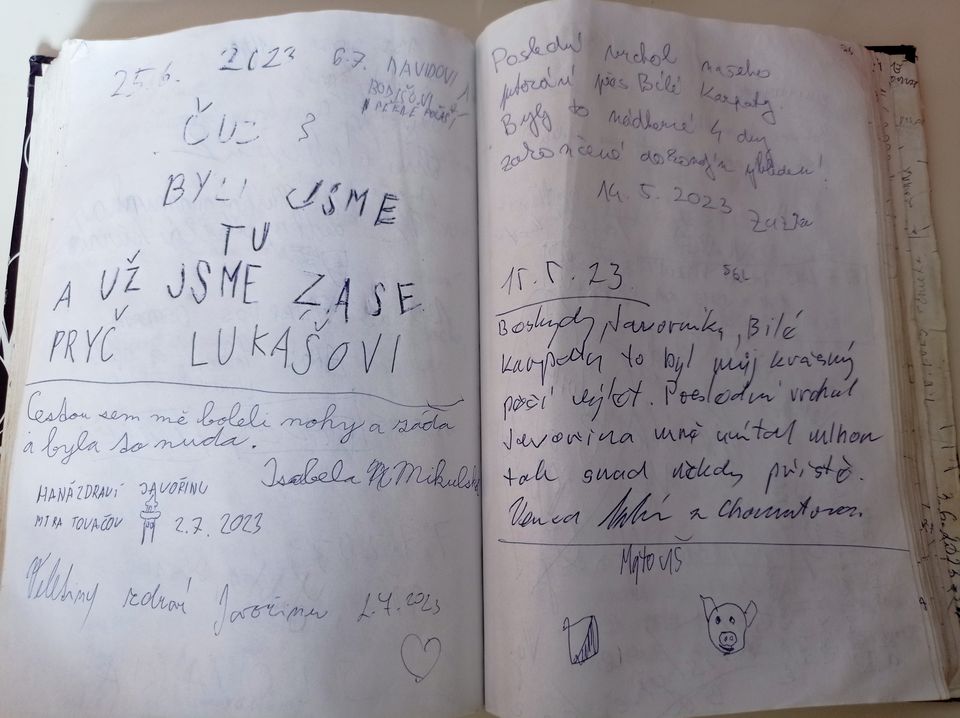 25.6. 2023 6.7. DAVIDOVI
BODIŠOVI
PĚKNÉ POČASÍ
ČUS
BYLI JSME
TU
A UŽ JSME ZASE
PRYČ LUKAŠOVI
Cestou sem mě boleli nohy a záda
a byla to nuda.
Isabela Mikulsk
HANÁ ZDRAVÍ JAVOŘINU
MIRA TOVAČOV 2.7. 2023
Velehiny zdraví Javořinu 2.7.2023
Poslední vrchol našeho
putování přes Bílé Karpaty.
Byly to nádherné 4 dny
zakončené dokonalým výhledem!
14. 5. 2023
Zuzka
15. 5. 23.
Beskydy, Javorníky, Bílé
Karpaty to byl můj krásný
pěší výlet. Poslední vrchol
Javorina mně uvítal mlhou
tak snad někdy příště.
Venca z Chomutova.
Matouš